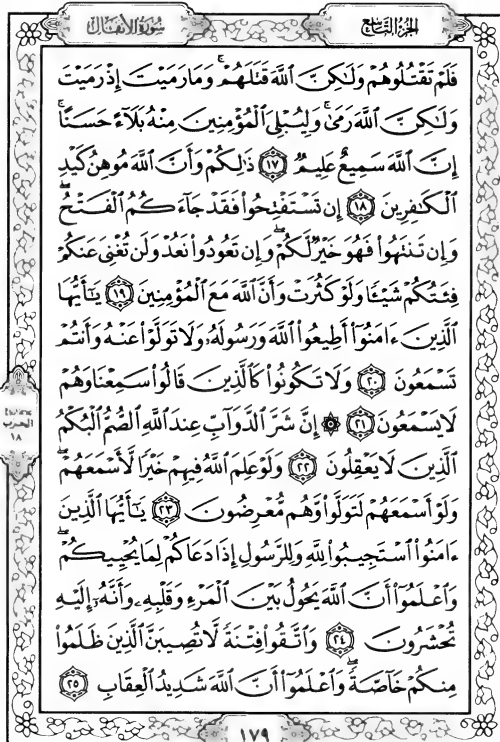 سُورَةُ الأَنفَال
الجُزْءُ التَّاسِع
فَلَمْ تَقْتُلُوهُمْ وَلَٰكِنَّ ٱللَّهَ قَتَلَهُمْ ۚ وَمَا رَمَيْتَ إِذْ رَمَيْتَ
وَلَٰكِنَّ ٱللَّهَ رَمَىٰ ۚ وَلِيُبْلِىَ ٱلْمُؤْمِنِينَ مِنْهُ بَلَآءً حَسَنًا ۚ
إِنَّ ٱللَّهَ سَمِيعٌ عَلِيمٌ ١٧ ذَٰلِكُمْ وَأَنَّ ٱللَّهَ مُوهِنُ كَيْدِ
ٱلْكَٰفِرِينَ ١٨ إِن تَسْتَفْتِحُوا۟ فَقَدْ جَآءَكُمُ ٱلْفَتْحُ ۖ
وَإِن تَنتَهُوا۟ فَهُوَ خَيْرٌ لَّكُمْ ۖ وَإِن تَعُودُوا۟ نَعُدْ وَلَن تُغْنِىَ عَنكُمْ
فِئَتُكُمْ شَيْـًٔا وَلَوْ كَثُرَتْ وَأَنَّ ٱللَّهَ مَعَ ٱلْمُؤْمِنِينَ ١٩ يَٰٓأَيُّهَا
ٱلَّذِينَ ءَامَنُوٓا۟ أَطِيعُوا۟ ٱللَّهَ وَرَسُولَهُۥ وَلَا تَوَلَّوْا۟ عَنْهُ وَأَنتُمْ
تَسْمَعُونَ ٢٠ وَلَا تَكُونُوا۟ كَٱلَّذِينَ قَالُوا۟ سَمِعْنَا وَهُمْ
لَا يَسْمَعُونَ ٢١ ۞ إِنَّ شَرَّ ٱلدَّوَآبِّ عِندَ ٱللَّهِ ٱلصُّمُّ ٱلْبُكْمُ
ٱلَّذِينَ لَا يَعْقِلُونَ ٢٢ وَلَوْ عَلِمَ ٱللَّهُ فِيهِمْ خَيْرًا لَّأَسْمَعَهُمْ ۖ
وَلَوْ أَسْمَعَهُمْ لَتَوَلَّوا۟ وَّهُم مُّعْرِضُونَ ٢٣ يَٰٓأَيُّهَا ٱلَّذِينَ
ءَامَنُوا۟ ٱسْتَجِيبُوا۟ لِلَّهِ وَلِلرَّسُولِ إِذَا دَعَاكُمْ لِمَا يُحْيِيكُمْ ۖ
وَٱعْلَمُوٓا۟ أَنَّ ٱللَّهَ يَحُولُ بَيْنَ ٱلْمَرْءِ وَقَلْبِهِۦ وَأَنَّهُۥٓ إِلَيْهِ
تُحْشَرُونَ ٢٤ وَٱتَّقُوا۟ فِتْنَةً لَّا تُصِيبَنَّ ٱلَّذِينَ ظَلَمُوا۟
مِنكُمْ خَآصَّةً ۖ وَٱعْلَمُوٓا۟ أَنَّ ٱللَّهَ شَدِيدُ ٱلْعِقَابِ ٢٥
الحزب
١٨
١٧٩